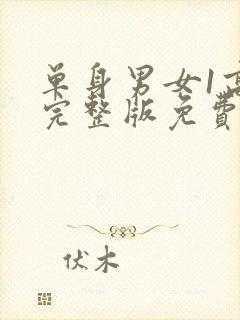 单身男女1高
完整版免費
伏木